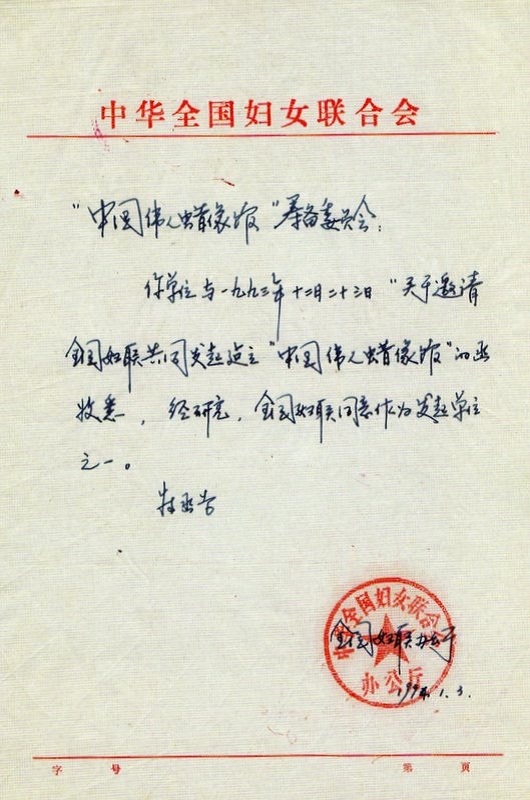 中华全国妇女联合会
"中国伟人蜡像馆"筹备委员会:
你单位与一九九三年十二月二十三日"关于邀请
全国妇联共同发起建立"中国伟人蜡像馆"的函
收悉,经研究,全国妇联同意作为发起单位
之一。
特函告
中华全国妇女联合会
办公厅
全国妇联办公厅
1994.1.3.
字 号 第 页